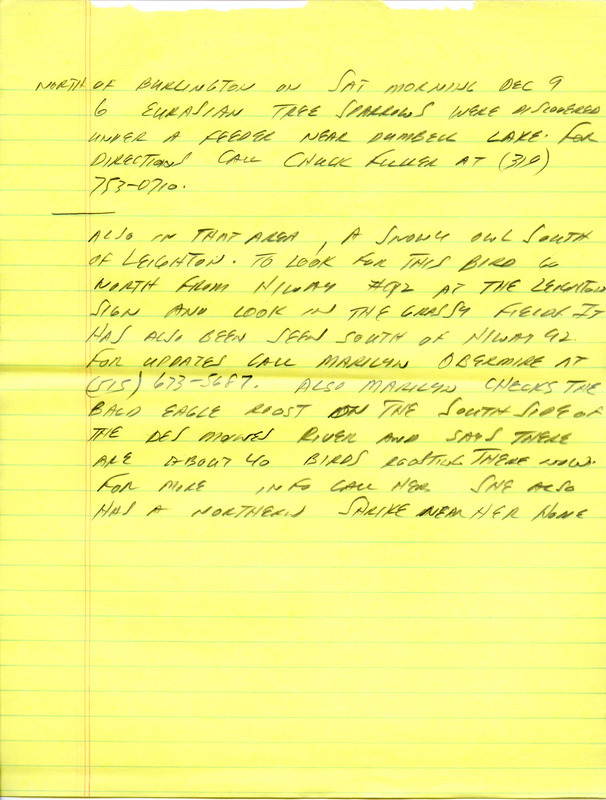 NORTH OF BURLINGTON ON SAT MORNING DEC 9
6 EURASIAN TREE SPARROWS WERE DISCOVERED
UNDER A FEEDER NEAR DUMBELL LAKE. FOR
DIRECTIONS CALL CHUCK FULLER AT (319)
753-0710.
ALSO IN THAT AREA, A SNOWY OWL SOUTH
OF LEIGHTON. TO LOOK FOR THIS BIRD GO
NORTH FROM HIWAY #92 AT THE LEIGHTON
SIGN AND LOOK IN THE GRASSY FIELDS IT
HAS ALSO BEEN SEEN SOUTH OF HIWAY 92.
FOR UPDATES CALL MARILYN OBERMIRE AT
(515) 673-5687. ALSO MARILYN CHECKS THE
BALD EAGLE ROOST ON THE SOUTH SIDE OF
THE DES MOINES RIVER AND SAYS THERE
ARE ABOUT 40 BIRDS ROOSTING THERE NOW.
FOR MORE INFO CALL HER SHE ALSO
HAS A NORTHERN SHRIKE NEAR HER HOME